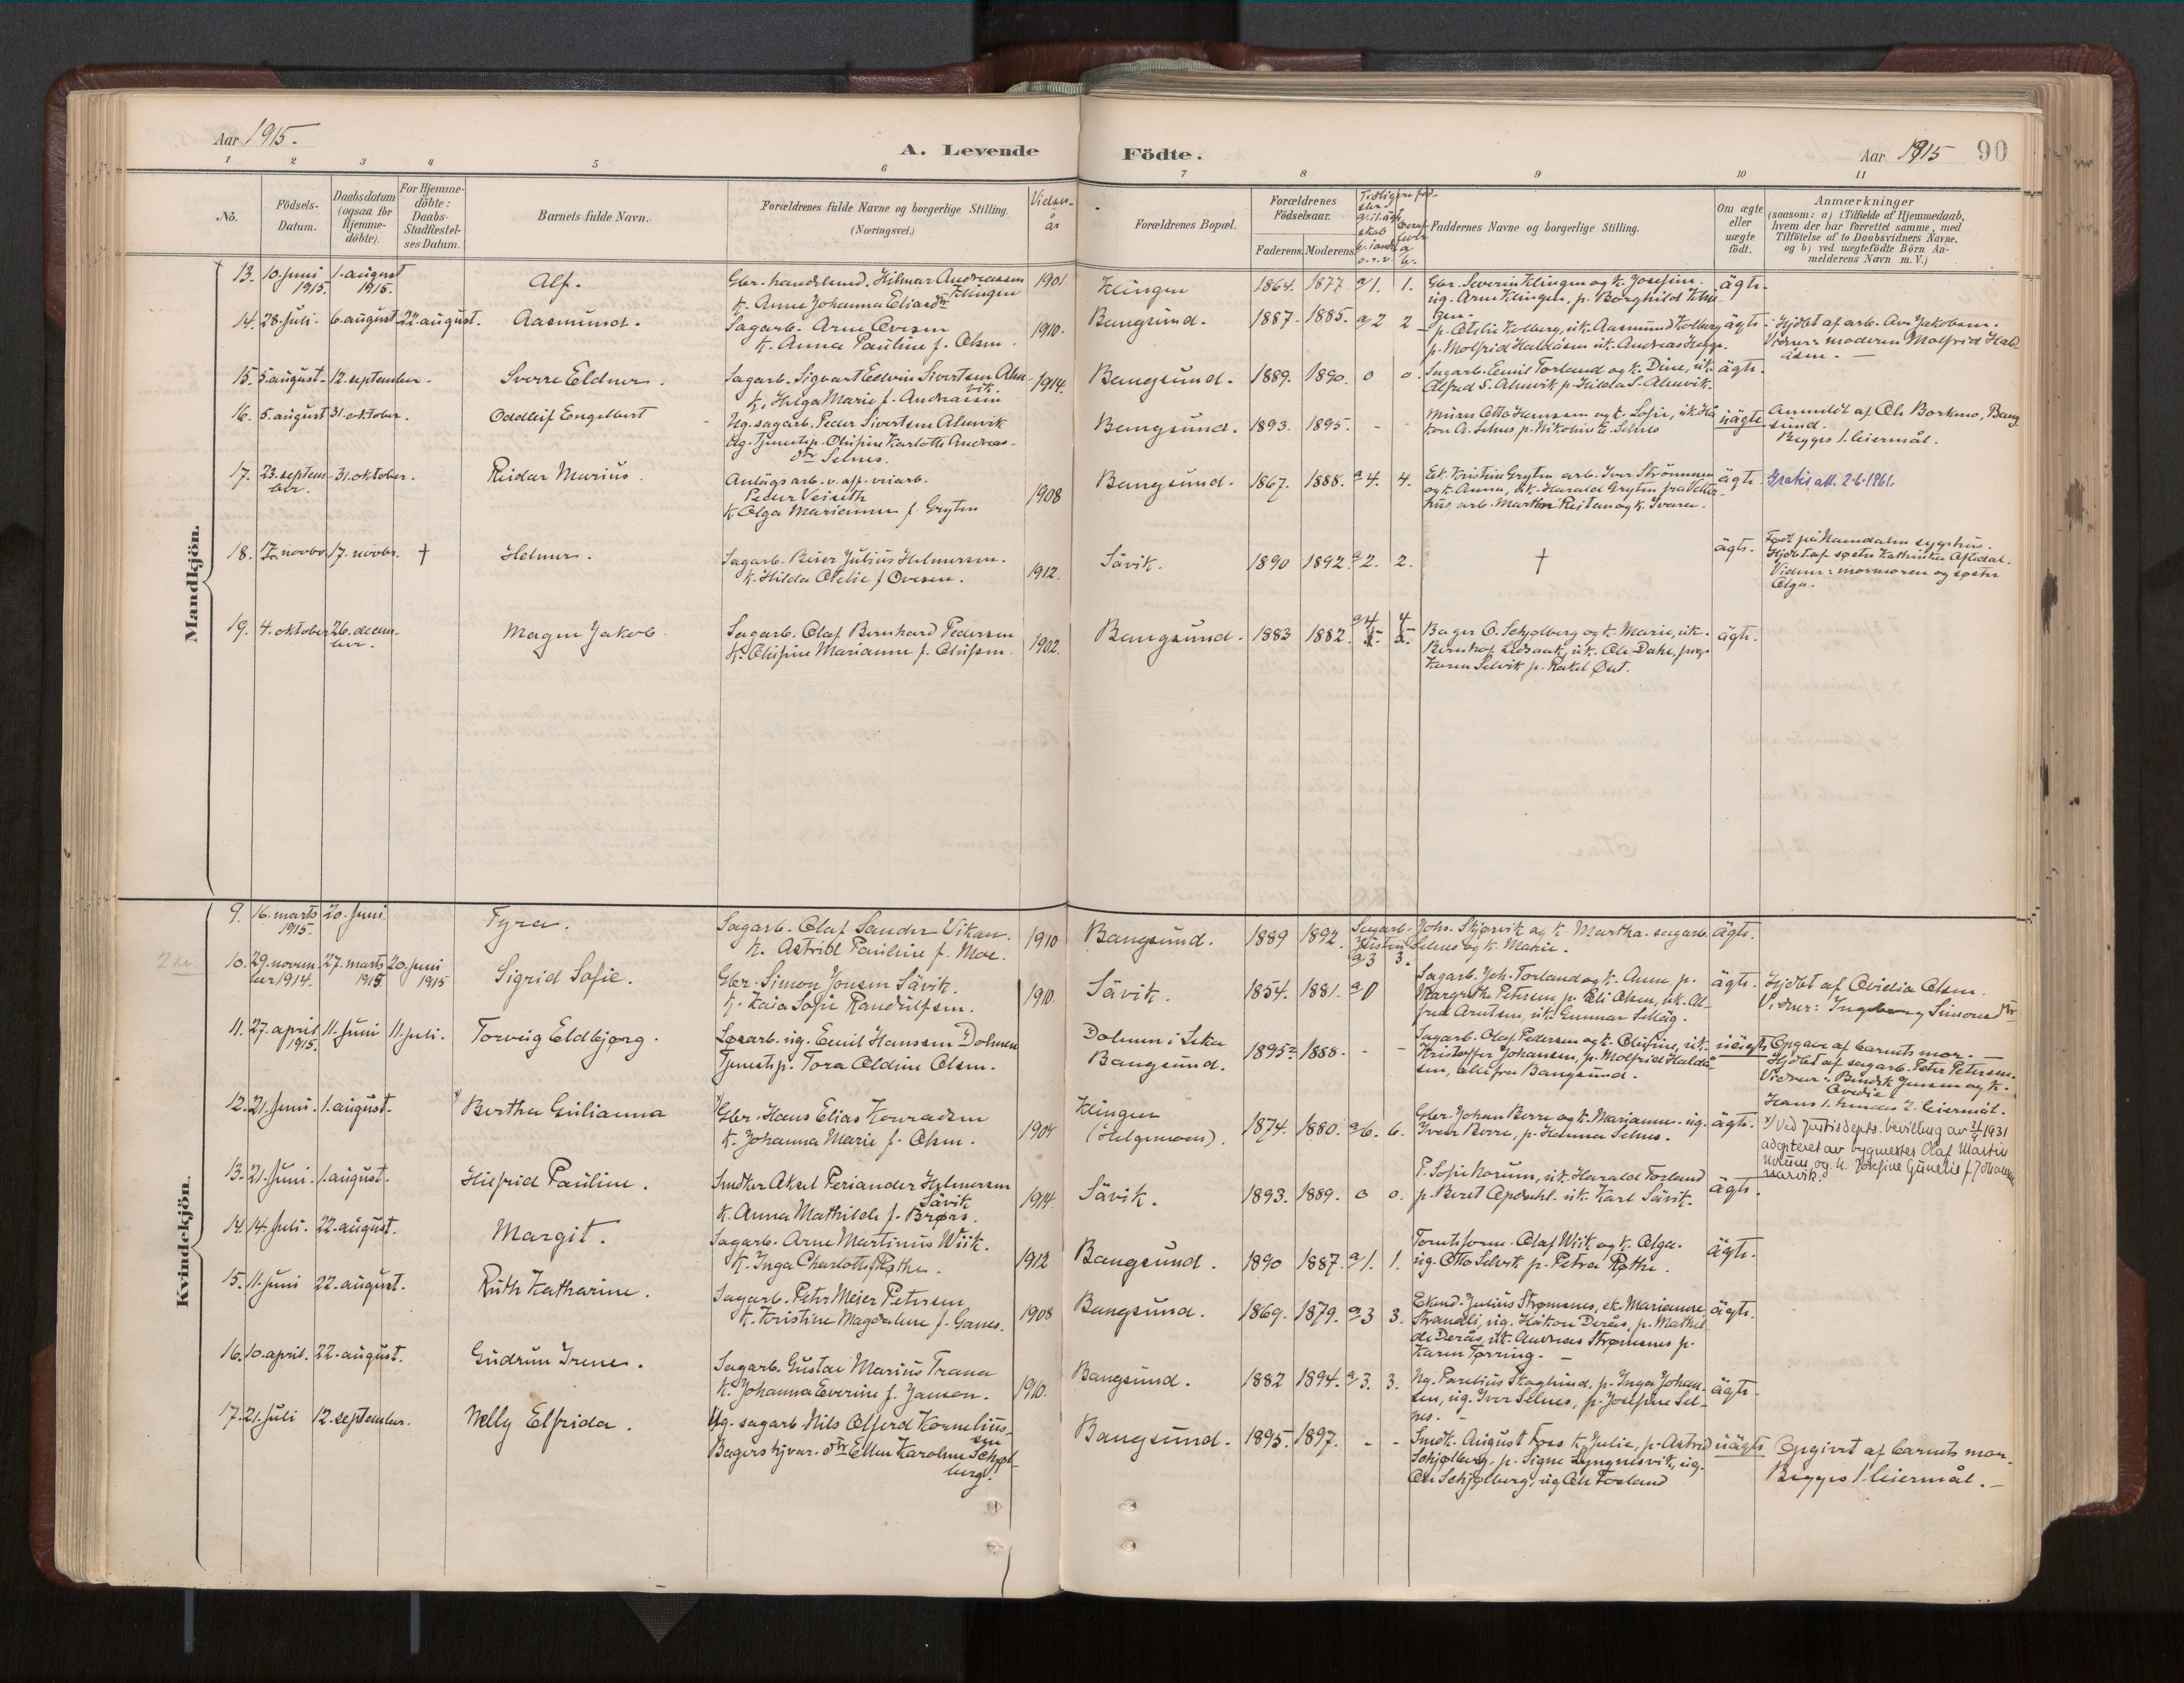 Aar 1915.
A. Levende
Födte.
Aar 1915 90
1 2 3 4 5 6 7 8 9 10 11
No.
Födsels-Datum.
Daabsdatum (ogsaa for Hjemme-döbte).
For Hjemme-döbte: Daabs-Stadfæstel-ses Datum.
Barnets fulde Navn.
Forældrenes fulde Navne og borgerlige Stilling.
(Næringsvei.)
Vielses-år
Forældrenes Bopæl.
Forældrenes Födselsaar.
Faderens. Moderens.
Faddernes Navne og borgerlige Stilling.
Om ægte eller uægte födt.
Anmærkninger
(saasom: a) i Tilfælde af Hjemmedaab,
hvem der har forrettet samme, med
Tilföielse af to Daabsvidners Navne.
og b) ved uægtefödte Börn An-
melderens Navn m. V.)
Mandkjön.
13. 10. juni 1915. 1. august 1915. Alf. Gbr. handelsmd. Hilmar Andreassen Klingen
K. Anna Johanna Eliasdtr 1901. Klingen 1864. 1877. a 1. 1. Gbr. Severin Klingen og K. Josefine.
ug. Arne Klingen, p. Borghild Klin-
gen. ägte.
14. 28. juli. 6. august 22. august. Aasmund. Sagarb. Arne Ovesen
K. Anna Pauline f. Olsen. 1910. Bangsund. 1887. 1885. a 2 2
p. Otelie Kolberg, uk. Aasmund Kolberg
p. Molfrid Haldåsen uk. Andreas ägte. Hjdbt af arb. Ove Jakobsen.
Vidner: moderen Molfrid Hald-
åsen.
15. 5. august. 12. september. Sverre Eldner. Sagarb. Sigvart Edvin Sivertsen Alm-
vik
K. Helga Marie f. Andreassen 1914. Bangsund. 1889. 1890. 0 0. Sagarb. Emil Torland og K. Dine, uk.
Alfred S. Almvik p. Hilda S. Almvik. ägte.
16. 5. august 31. oktober. Oddleif Engelbert Ug. sagarb. Peder Sivertsen Almvik
Ug. Tjenestp. Olufine Karlotte Andreas-
dtr Selnes. Bangsund. 1893. 1895. - - Murer Otto Hanssen og K. Sofie, uk. Hå
kon A. Selnes p. Nikoline K. Selnes uägte Anmeldt af Ole Borkmo, Bang
sund.
Begges 1. leiermål.
17. 23. septem-
ber. 31. oktober. Reidar Marius. Anlägs arb. v.
Peder Veiseth
K. Olga Marianna f. Gryten 1908 Bangsund. 1867. 1888. a 4. 4. Ek. Kristine Gryten arb. Iver Strömmen
og K. Anna, uk. Harald Gryten fra
arb. Marthin Reitan og K. Ivara. ägte. Gratis att. 2-6-1961.
18. 17. novbr. † Helmer. Sagarb. Birger Julius Helmersen.
K. Hilda Otelie f Ovesen. 1912. Sävik. 1890 1892. a 2. 2. † ägte. Født på Namdalens sygehus.
Hjdbt af søster Kathinka Aftedal.
Vidner: mormoren og søster
Olga.
19. 4. oktober 26. decem-
ber. Magne Jakob Sagarb. Olaf Bernhard Pedersen
K. Olufine Marianne f. Olufsen. 1902. Bangsund. 1883 1882. a 4 4 Bager O. Schjølberg og K. Marie, uk.
Bernhof uk. Ole Dahl, pug.
Karen Selvik p. Rakel ägte.
Kvindekjön.
9. 16. marts 1915. 20. juni. Tyra. Sagarb. Olaf Sander Vikan.
K. Astrid Pauline f. Moe. 1910 Bangsund. 1889 1892. a 3 3. Sagarb. Johs. Skjørvik og K. Martha. sagarb.
Selnes og K. Marie. ägte.
2 kv. 10. 29. novem-
ber 1914. 27. marts 1915. 20. juni 1915 Sigrid Sofie. Gbr. Simon Jonsen Sävik.
K. Kaia Sofie Randulfsen. 1910. Sävik. 1854. 1881. a 0 Sagarb. Joh. Torland og K. Anna p.
Margrethe Petersen, p. Eli Olsen, uk. Al-
fred Arntsen, uk. Gunnar Selläg. ägte. Hjdbt af Ovidia Olsen.
Vidner: Ingeborg Simonsdtr
11. 27. april 1915. 11. juni 11. juli. Torveig Eldbjørg. Løsarb. ug. Emil Hanssen Dolmen
Tjenestp. Tora Oldine Olsen. Dolmen i Leka
Bangsund. 1895 1888. - - Sagarb. Olaf Pedersen og K. Olufine, uk.
Kristoffer Johansen, p. Molfrid Haldå-
sen, alle fra Bangsund. uägte Opgave af barnets mor.
Hjdbt af sagarb. Petter Petersen.
Vidner: Bendik Jensen og K.
Ovedie.
Hans 1. hendes 2. leiermål.
12. 21. juni. 1. august. x) Bertha Giulianna x) Gbr. Hans Elias Konradsen
K. Johanna Marie f. Olsen. 1904 Klingen
(Helgemoen). 1874. 1880. a 6. 6. Gbr. Johan Berre og K. Marianne. ug.
Iver Berre, p. Hanna Selnes. ägte. x) Ved Justisdepts. bevilling av 21/9 1931
adopteret av bygmester Olaf Martin
Norum og h. Josefine Gunelie f. Johann
13. 21. juni. 1. august. Hilfrid Pauline. Snedker Aksel Periander Helmersen
Sävik
K. Anna Mathilde f. Brørs. 1914. Sävik. 1893. 1889. 0 0. P. Sofie Norum, uk. Harald Torland
p. Beret Opdahl. uk. Karl Sävik. ägte.
14. 14. juli. 22. august. Margit. Sagarb. Arne Martinus Wiik.
K. Inga Charlotte f. Røthe. 1912 Bangsund. 1890 1887. a 1. 1. Tomteform. Olaf Wiik og K. Olga.
ug. Otto Selvik p. Petra Røthe. ägte.
15. 11. juni 22. august. Ruth Katharine. Sagarb. Peter Meier Petersen
K. Kristine Magdalene f. Ganes. 1908 Bangsund. 1869. 1879. a 3 3. Ekmd. Julius Strømsnes, ek. Marianne
Strandli, ug. Håkon Derås, p. Mathil-
de Derås, uk. Andreas Strømsnes p.
Karen Tørring. ägte.
16. 10. april. 22. august. Gudrun Irene. Sagarb. Gustav Marius Trana
K. Johanna Everine f. Jansen. 1910. Bangsund. 1882 1894. a 3. 3. Ug. Parelius Skaglund, p. Inga Johan-
sen, ug. Iver Selnes, p. Josefine Sel-
nes. ägte
17. 21. juli 12. september. Nelly Elfrida. Ug. sagarb. Nils Olferd Kornelius-
sen
Bagers hjvær. dtr Ellen Karoline Schjøl-
berg. Bangsund. 1895. 1897. - - Smed. August Foss K. Julie, p. Astrid
Schjølberg, p. Signe Lyngnesvik, ug.
Ole Schjølberg, ug Ole Torland uägte Opgivet af barnets mor.
Begges 1. leiermål.